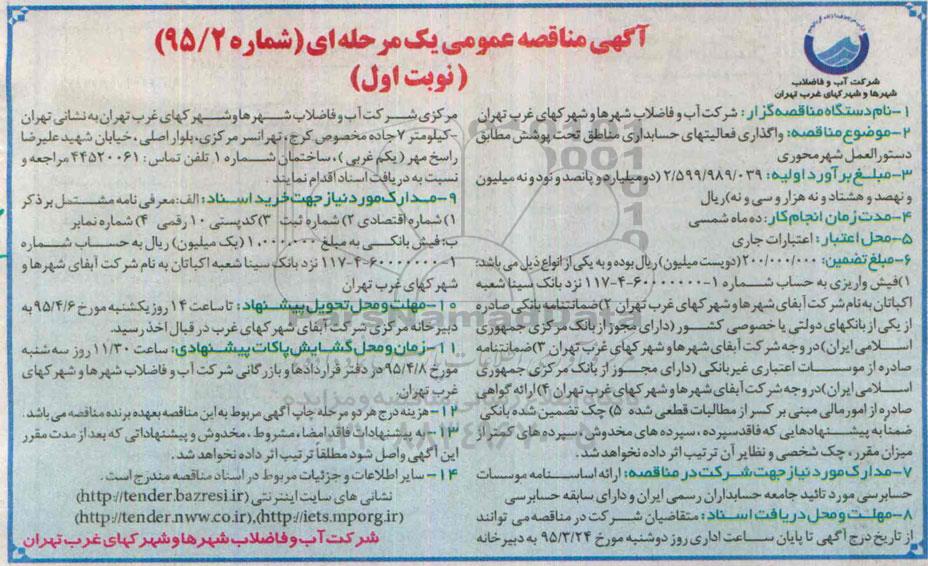 آگهی مناقصه عمومی یک مرحله ای (شماره ۹۵/۲)
(نوبت اول)
شرکت آب و فاضلاب
شهرها و شهرکهای غرب تهران
۱-نام دستگاه مناقصه گزار: شرکت آب و فاضلاب شهرها و شهرکهای غرب تهران
۲-موضوع مناقصه: واگذاری فعالیتهای حسابداری مناطق تحت پوشش مطابق
دستورالعمل شهر محوری
۳-مبلغ برآورد اولیه: ۲/۵۹۹/۹۸۹/۰۳۹ (دو میلیارد و پانصد و نود و نه میلیون
و نهصد و هشتاد و نه هزار و سی و نه) ریال
۴-مدت زمان انجام کار: ده ماه شمسی
۵-محل اعتبار: اعتبارات جاری
۶-مبلغ تضمین: ۲۰۰/۰۰۰/۰۰۰ (دویست میلیون) ریال بوده و به یکی از انواع ذیل می باشد:
۱)فیش واریزی به حساب شماره ۱-۶۰۰۰۰۰۰۰-۴-۱۱۷ نزد بانک سینا شعبه
اکباتان به نام شرکت آبفای شهرها و شهرکهای غرب تهران ۲)ضمانتنامه بانکی صادره
از یکی از بانکهای دولتی یا خصوصی کشور (دارای مجوز از بانک مرکزی جمهوری
اسلامی ایران) در وجه شرکت آبفای شهرها و شهرکهای غرب تهران ۳)ضمانتنامه
صادره از موسسات اعتباری غیربانکی (دارای مجوز از بانک مرکزی جمهوری
اسلامی ایران) در وجه شرکت آبفای شهرها و شهرکهای غرب تهران ۴)ارائه گواهی
صادره از امور مالی مبنی بر کسر از مطالبات قطعی شده ۵) چک تضمین شده بانکی
ضمناً به پیشنهادهایی که فاقد سپرده، سپرده های مخدوش، سپرده های کمتر از
میزان مقرر، چک شخصی و نظایر آن ترتیب اثر داده نخواهد شد.
۷-مدارک مورد نیاز جهت شرکت در مناقصه: ارائه اساسنامه موسسات
حسابرسی مورد تائید جامعه حسابداران رسمی ایران و دارای سابقه حسابرسی
۸-مهلت و محل دریافت اسناد: متقاضیان شرکت در مناقصه می توانند
از تاریخ درج آگهی تا پایان ساعت اداری روز دوشنبه مورخ ۹۵/۳/۲۴ به دبیرخانه
مرکزی شرکت آب و فاضلاب شهرها و شهرکهای غرب تهران به نشانی تهران
-کیلومتر ۷ جاده مخصوص کرج، تهرانسر مرکزی، بلوار اصلی، خیابان شهید علیرضا
راسخ مهر (یکم غربی)، ساختمان شماره ۱ تلفن تماس: ۴۴۵۲۰۰۶۱ مراجعه و
نسبت به دریافت اسناد اقدام نمایند.
۹-مدارک مورد نیاز جهت خرید اسناد: الف: معرفی نامه مشتمل بر ذکر
۱) شماره اقتصادی ۲) شماره ثبت ۳)کدپستی ۱۰ رقمی ۴) شماره نمابر
ب: فیش بانکی به مبلغ ۱۰۰۰۰۰۰ (یک میلیون) ریال به حساب شماره
۱-۶۰۰۰۰۰۰۰-۴-۱۱۷ نزد بانک سینا شعبه اکباتان به نام شرکت آبفای شهرها و
شهرکهای غرب تهران
۱۰-مهلت و محل تحویل پیشنهاد: تا ساعت ۱۴ روز یکشنبه مورخ ۹۵/۴/۶ به
دبیرخانه مرکزی شرکت آبفای شهرکهای غرب در قبال اخذ رسید.
۱۱-زمان و محل گشایش پاکات پیشنهادی: ساعت ۱۱/۳۰ روز سه شنبه
مورخ ۹۵/۴/۸ در دفتر قراردادها و بازرگانی شرکت آب و فاضلاب شهرها و شهرکهای
غرب تهران
۱۲-هزینه درج هر دو مرحله چاپ آگهی مربوط به این مناقصه بعهده برنده مناقصه می باشد.
۱۳-به پیشنهادات فاقد امضا، مشروط، مخدوش و پیشنهاداتی که بعد از مدت مقرر
این آگهی واصل شود مطلقاً ترتیب اثر داده نخواهد شد.
۱۴-سایر اطلاعات و جزئیات مربوط در اسناد مناقصه مندرج است.
نشانی های سایت اینترنتی (http://tender.bazresi.ir)
(http://tender.nww.co.ir),(http://iets.mporg.ir)
شرکت آب و فاضلاب شهرها و شهرکهای غرب تهران
ParsNamadData